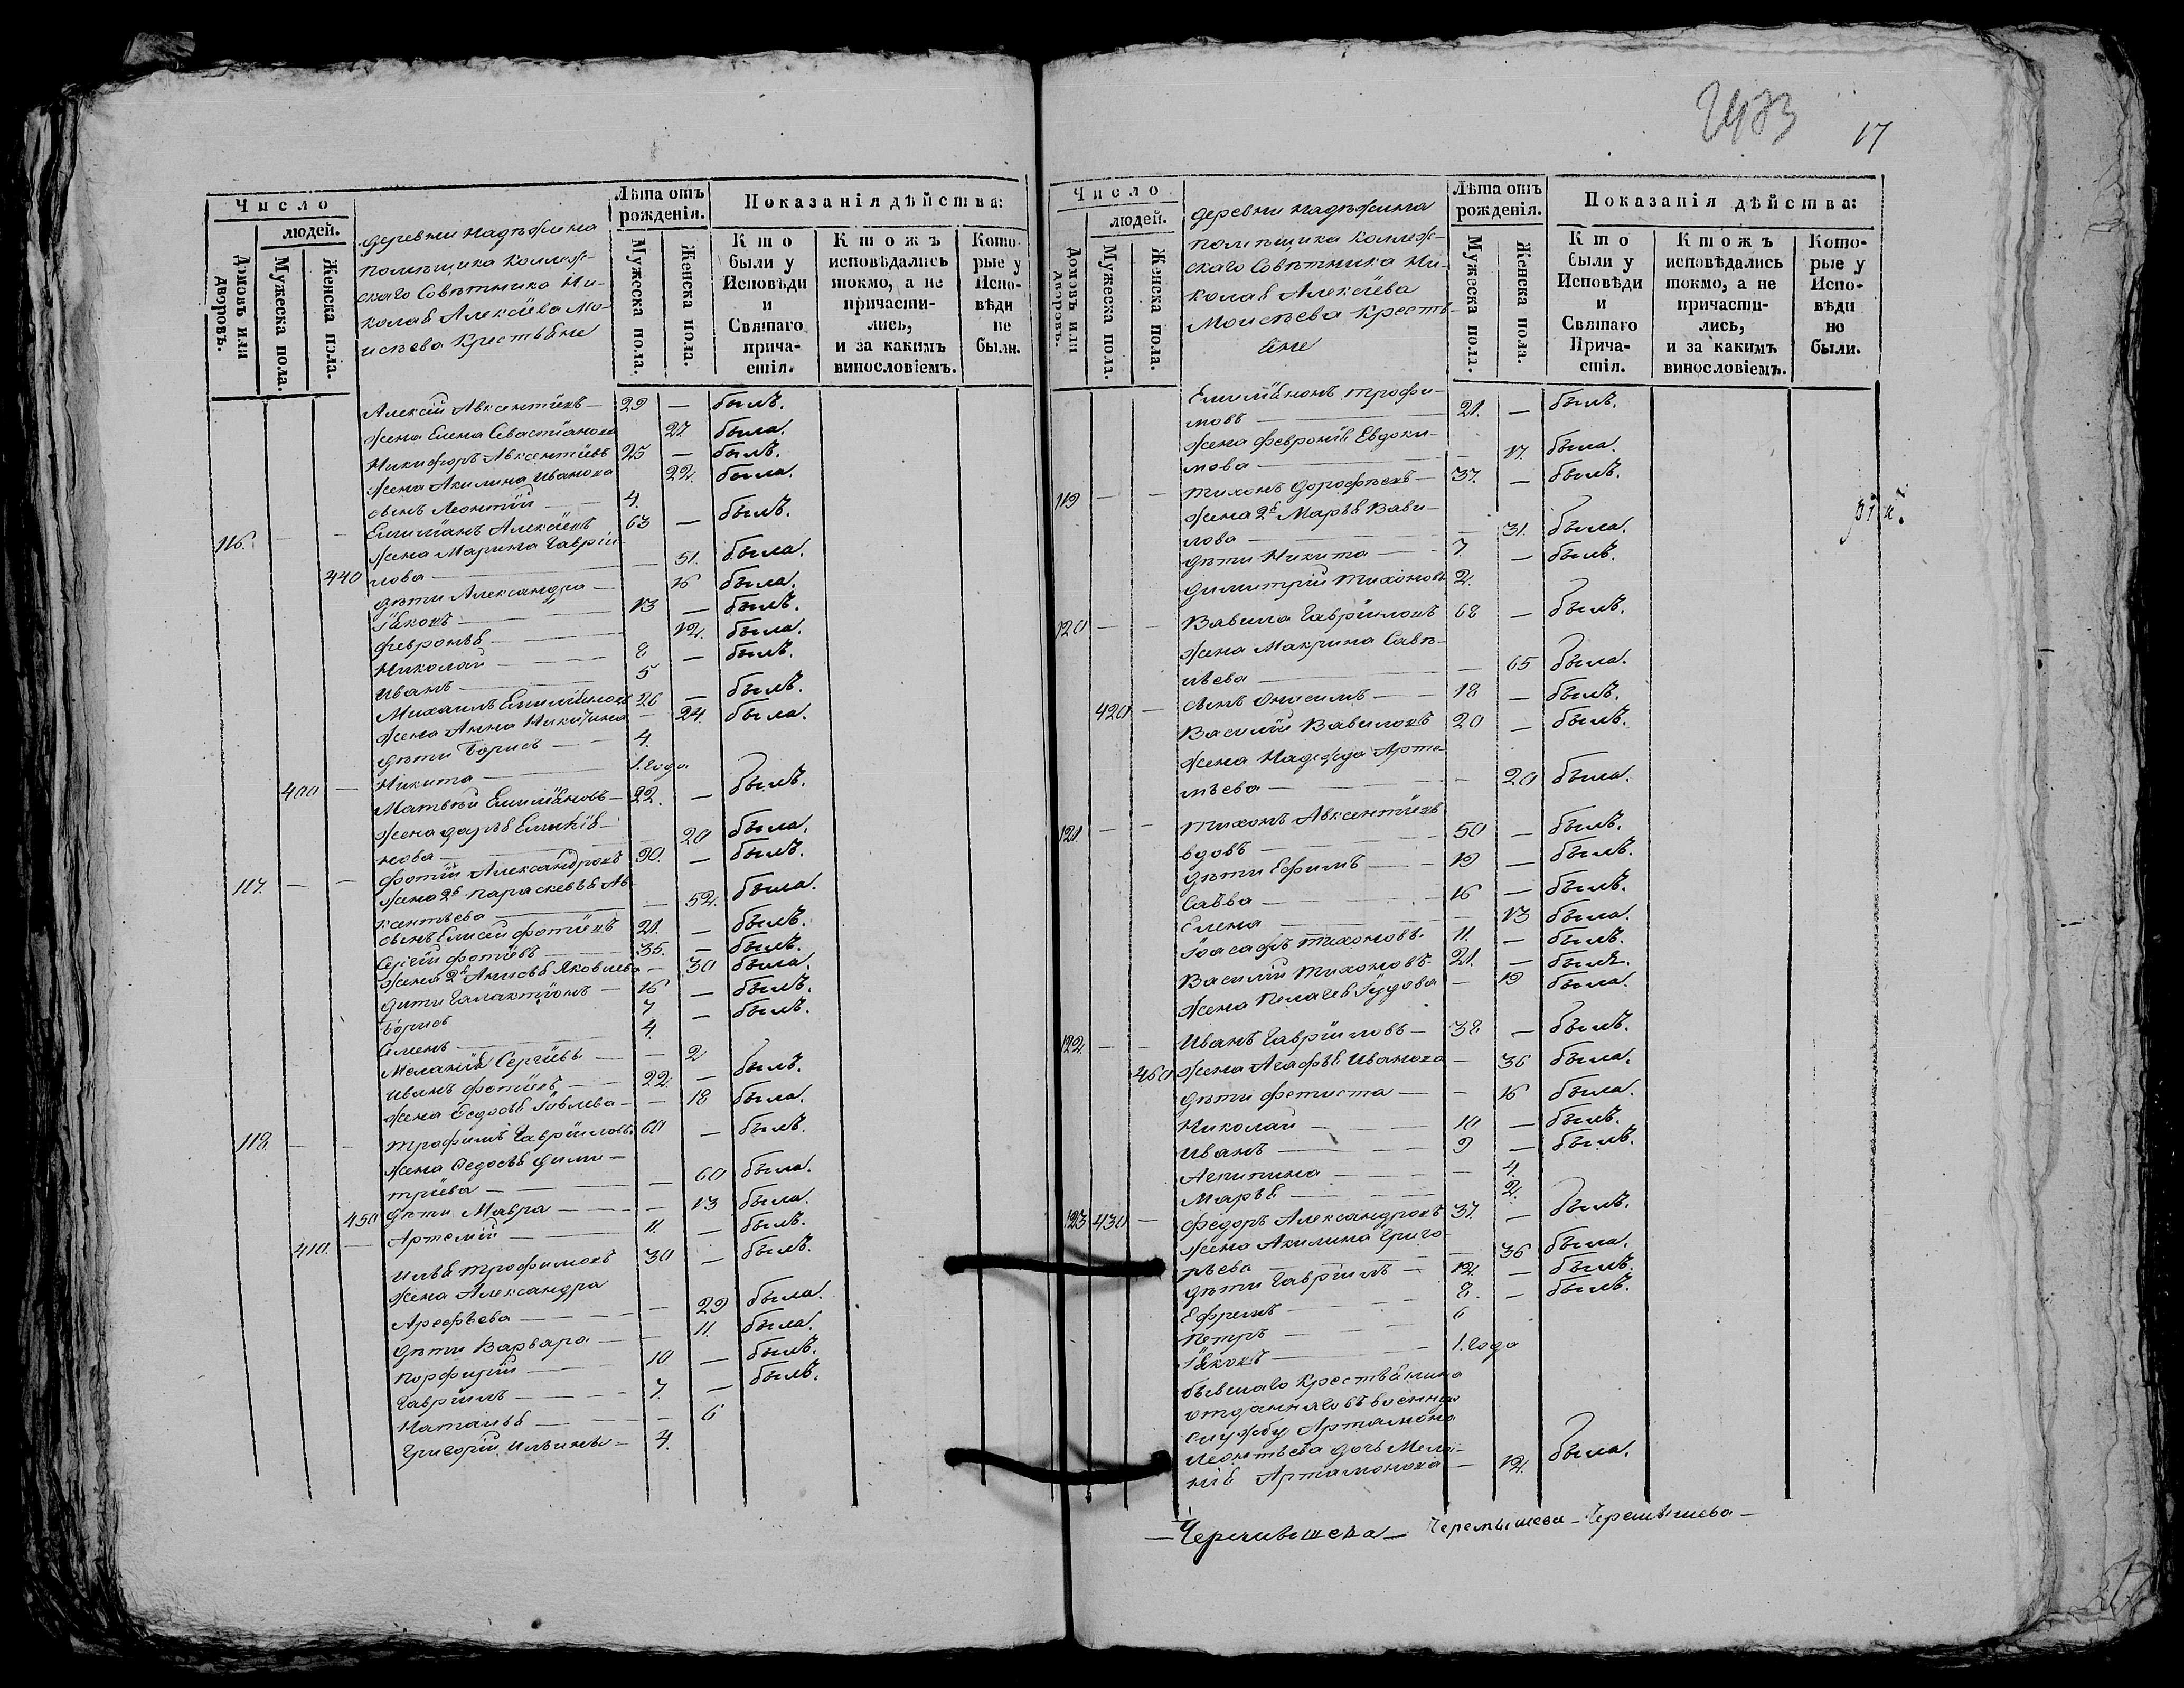 2483
17
Число
людей.
Домовъ или дворовъ.
Мужеска пола.
Женска пола.
деревни Надѣжина
помѣщика Коллеж-
скаго Совѣтника Ни-
колая Алексѣева Мо-
исѣева Крестьяне
Лѣта отъ рожденія.
Мужеска пола.
Женска пола.
Показанія дѣйства:
Кто были у Исповѣди и Святаго прича-стія.
Ктожъ исповѣдались токмо, а не причасти-лись, и за какимъ винословіемъ.
Кото-рые у Испо-вѣди не были.
Алексій Авксентіевъ — 29 — былъ.
Жена Елена Севастіанова 27. была.
Никифоръ Авксентіевъ 25 — былъ.
Жена Акилина Иванова 22. была.
сынъ Леонтій — 4.
116. — — Емиліанъ Алексѣевъ 63 — былъ.
Жена Марина Гаврі-
440 лова — — 51. была.
дѣти Александра — 16 была.
Іаковъ — 13 — былъ.
Февронья — 12. была.
Николай — 8 — былъ.
Иванъ — 5
Михаилъ Емиліановъ 26 — былъ.
Жена Анна Никитина — 24. была.
дѣти Борисъ — 4.
400 — Никита — 1. года
Матвѣй Емиліановъ — 22. — былъ.
Жена Дарья Емилія-
нова — 20 была.
117. — — Фотій Александровъ 90. — былъ.
Жена 2я Параскевья Ав-
ксентьева — 52. была.
сынъ Елисей Фотіевъ 21. — былъ.
Сергій Фотіевъ — 35. — былъ.
Жена 2я Анисья Яковлева — 30 была.
дѣти Галактіонъ — 16 — былъ.
Борисъ 7 — былъ.
Семенъ — 4.
Меланія Сергіевы — — 2
Иванъ Фотіевъ — 22. — былъ.
Жена Ѳедосья Іовлева — — 18 была.
118. — — Трофимъ Гавріиловъ 60 — былъ.
Жена Ѳедосья Дими-
тріева — — 60 была.
450 дѣти Мавра — — 13 была.
410. — Артемій — 11. — былъ.
Илья Трофимовъ 30 — былъ.
Жена Александра
Арефьева — — 29 была.
дѣти Варвара — — 11. была.
Порфирій — 10 — былъ.
Гавріилъ — 7. — былъ.
Наталья — — 6
Григорій Ильины — 4.
Число
людей.
Домовъ или дворовъ.
Мужеска пола.
Женска пола.
деревни Надѣжина
помѣщика Коллеж-
скаго Совѣтника Ни-
колая Алексѣева
Моисѣева Кресть-
яне
Лѣта отъ рожденія.
Мужеска пола.
Женска пола.
Показанія дѣйства:
Кто были у Исповѣди и Святаго Прича-стія.
Ктожъ исповѣдались токмо, а не причасти-лись, и за какимъ винословіемъ.
Кото-рые у Испо-вѣди не были.
Емиліанъ Трофи-
мовъ — 21. — былъ.
Жена Февронія Евдоки-
мова — — 17. была.
119 — — Тихонъ Дорофѣевъ — 37. — былъ.
Жена 2я Марья Вави-
лова — — 31. была.
дѣти Никита — 7. — былъ.
Димитрій Тихоновы 2.
120 — — Вавила Гавріиловъ 68 — былъ.
Жена Макрина Савѣ-
льева — — 65 была.
420 — сынъ Онисимъ — 18 — былъ.
Василій Вавиловъ 20 — былъ.
Жена Надежда Арте-
мьева — — 20 была.
121. — — Тихонъ Авксентіевъ
вдовъ — 50 — былъ.
дѣти Ефимъ — 19 — былъ.
Савва — 16 — былъ.
Елена — — 13 была.
Іоасафъ Тихоновы. 11. — былъ.
Василій Тихоновъ 21. — былъ.
Жена Пелагея Іудова — 19 была.
122. — — Иванъ Гавріиловъ — 38 — былъ.
460 Жена Агафья Иванова — 36 была.
дѣти Фетиста — — 16 была.
Николай — 10 — былъ.
Иванъ — 9 — былъ.
Агрипина — — 4.
Марья — 2.
123 430 — Федоръ Александровъ 37. — былъ.
Жена Акилина Григо-
рьева — — 36 была.
дѣти Гавріилъ — 12. — былъ.
Ефремъ — 8. — былъ.
Петръ — 6
Іаковъ — 1. года
бывшаго Крестьянина
отданнаго въ военную
службу Артамона
Леонтьева дочь Мела-
нія Артамонова — 12. была.
— Черемышева — Черемышева — Черемышева —